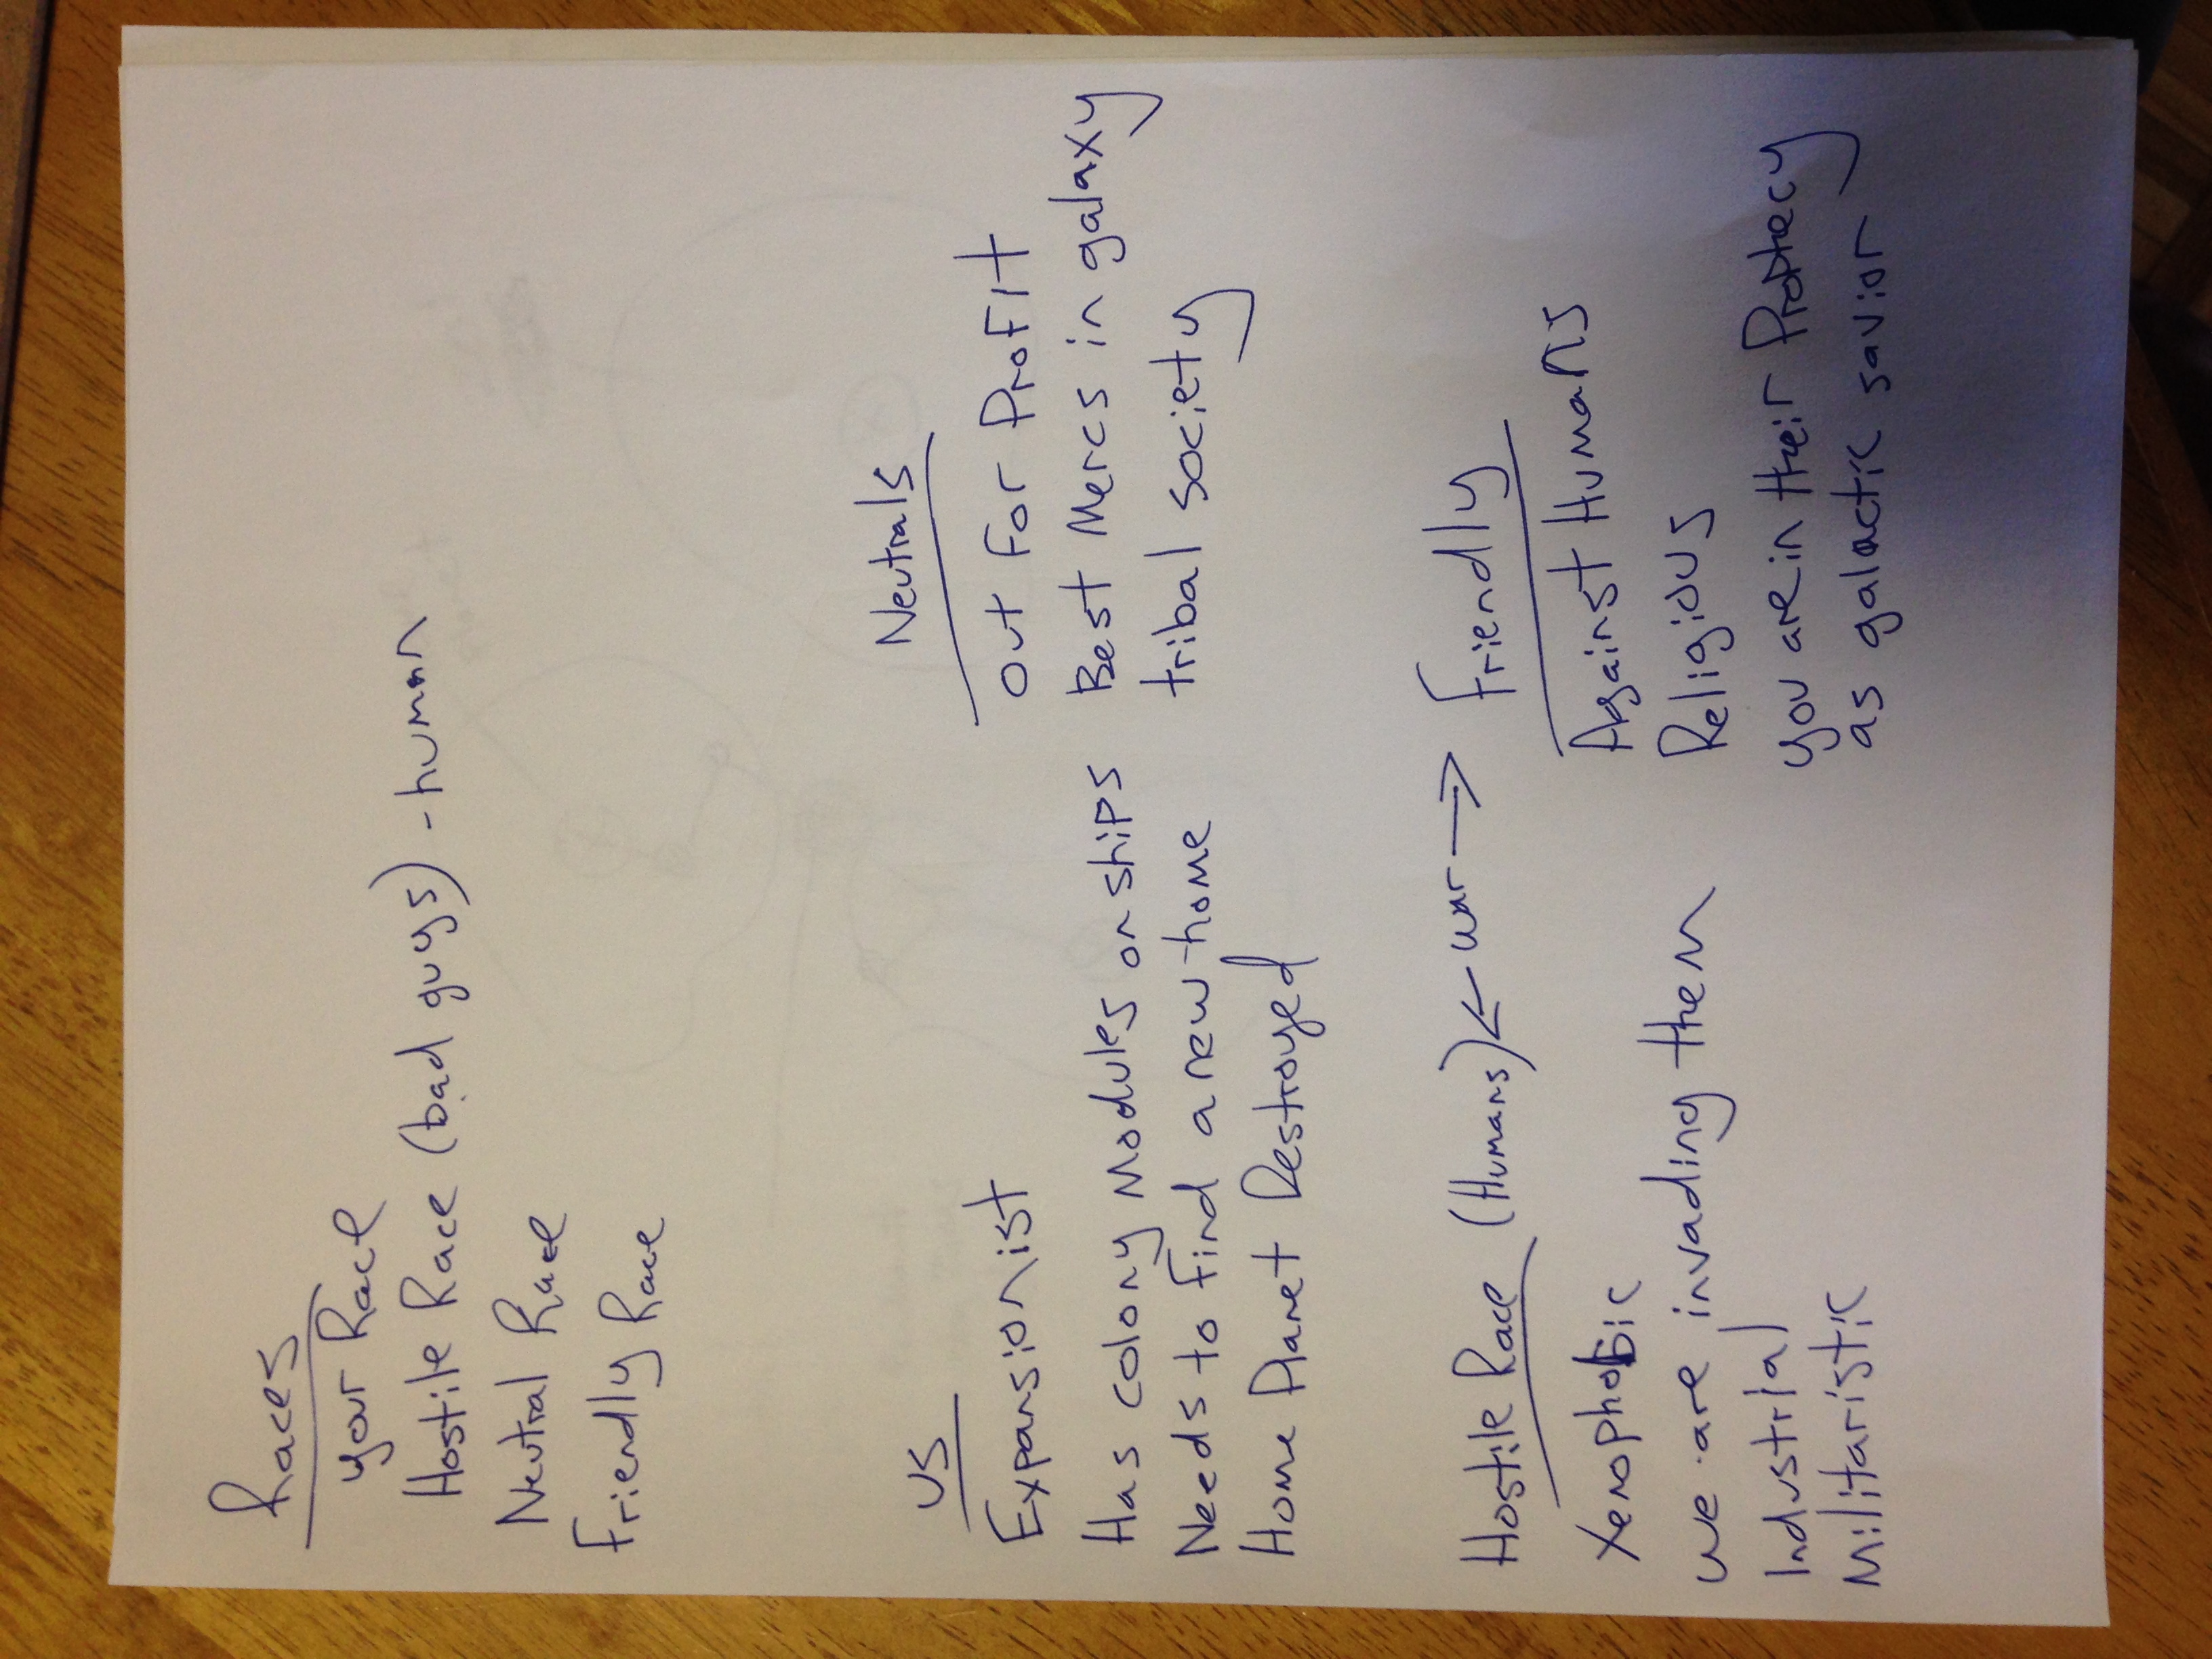 Races
your Race
Hostile Race (bad guys) - human
Neutral Race
Friendly Race
US
Expansionist
Has colony Modules on ships
Needs to find a new home
Home Planet Destroyed
Neutrals
out for Profit
Best Mercs in galaxy
tribal society
Hostile Race (Humans) ← war →
Xenophobic
we are invading them
Industrial
Militaristic
Friendly
Against Humans
Religious
you are in their Prophecy
as galactic savior